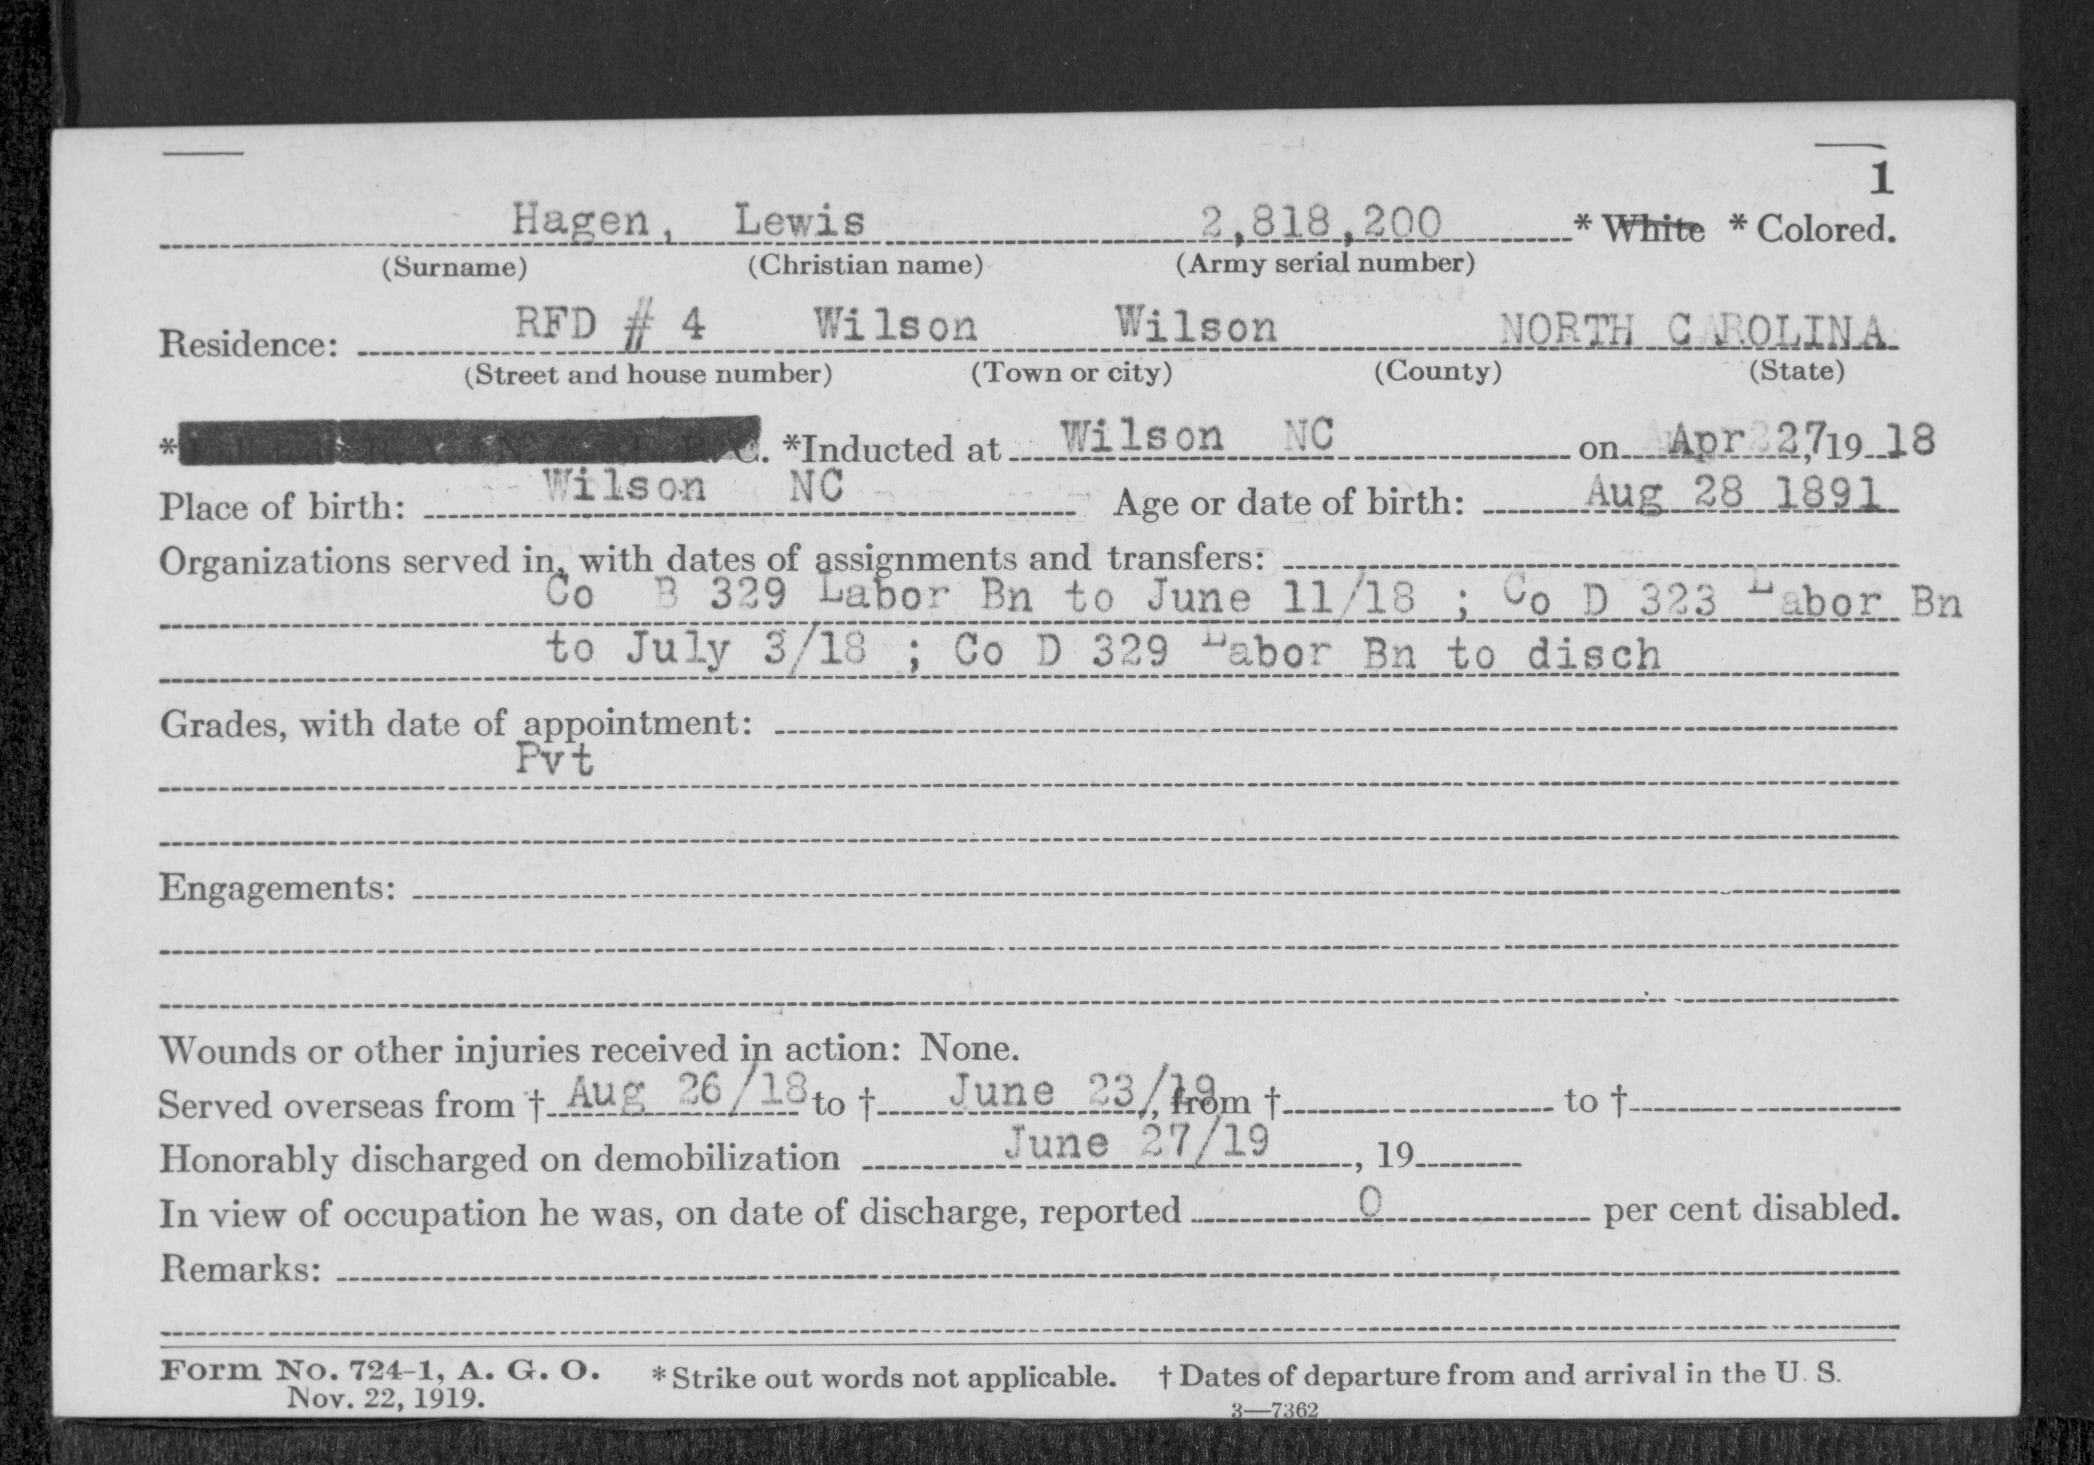 1
Hagen, Lewis 2,818,200 * White * Colored.
(Surname) (Christian name) (Army serial number)
Residence: RFD # 4 Wilson Wilson NORTH CAROLINA
(Street and house number) (Town or city) (County) (State)
* *Inducted at Wilson NC on Apr 27, 19 18
Place of birth: Wilson NC Age or date of birth: Aug 28 1891
Organizations served in, with dates of assignments and transfers:
Co B 329 Labor Bn to June 11/18 ; Co D 323 Labor Bn
to July 3/18 ; Co D 329 Labor Bn to disch
Grades, with date of appointment:
Pvt
Engagements:
Wounds or other injuries received in action: None.
Served overseas from † Aug 26/18 to † June 23/19, from † to †
Honorably discharged on demobilization June 27/19, 19
In view of occupation he was, on date of discharge, reported 0 per cent disabled.
Remarks:
Form No. 724-1, A. G. O. * Strike out words not applicable. † Dates of departure from and arrival in the U. S.
Nov. 22, 1919. 3—7362